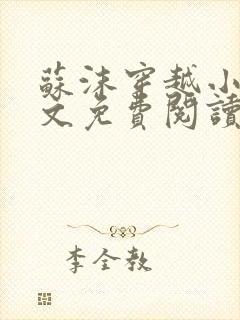 蘇沫穿越小
文免費閱讀
李全教